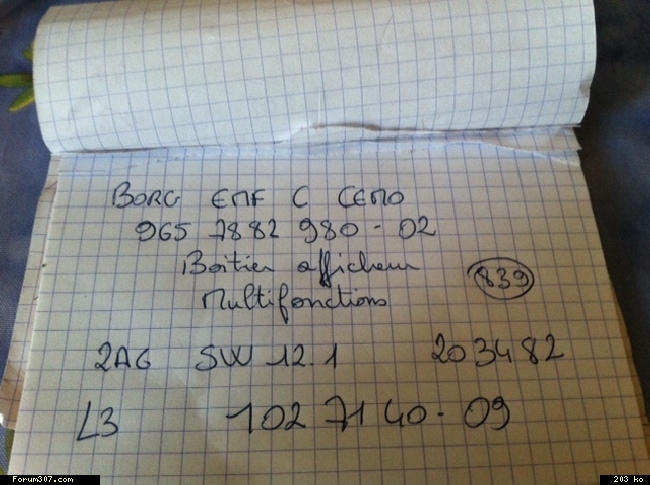 BORG EMF C CEMO
965 7882 980 - 02
Boîtier afficheur
Multifonctions
839
2AG SW 12.1 203482
L3 102 71 40 - 09
Forum307.com
203 ko